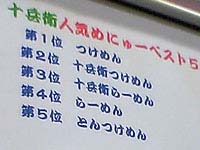 十兵衛人気めにゅーベスト5
第1位 つけめん
第2位 十兵衛つけめん
第3位 十兵衛らーめん
第4位 らーめん
第5位 とんつけめん